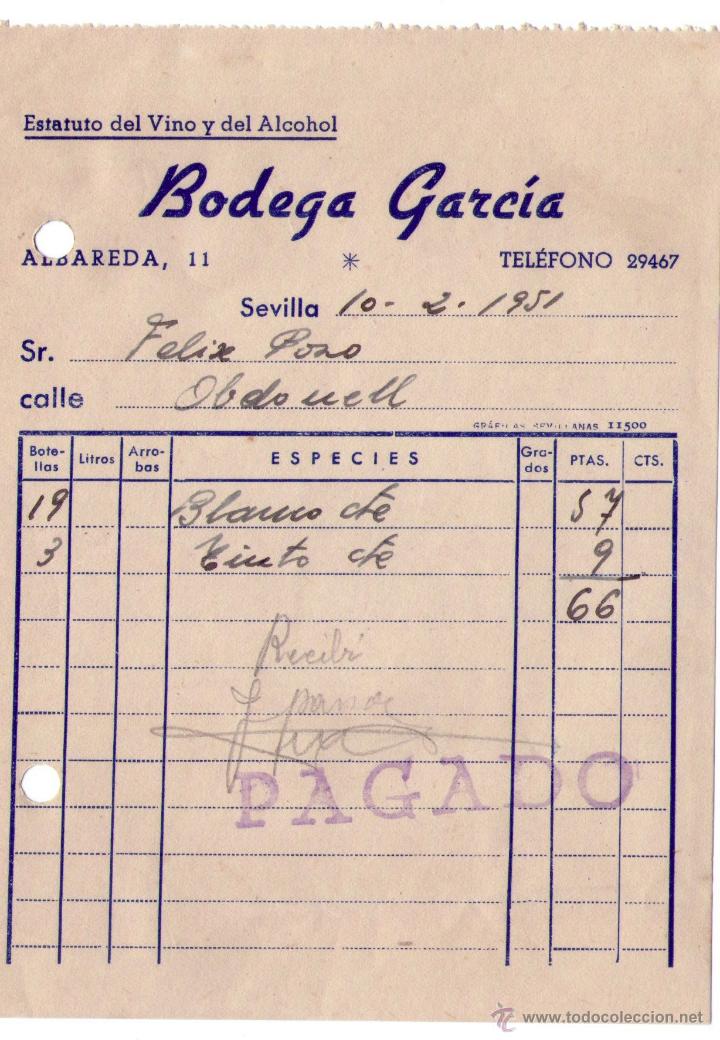 Estatuto del Vino y del Alcohol
Bodega García
ALBAREDA, 11 * TELÉFONO 29467
Sevilla 10-2-1951
Sr. Felix Pozo
calle Obdonell
GRÁFICAS SEVILLANAS 11500
Bote-llas Litros Arro-bas ESPECIES Gra-dos PTAS. CTS.
19 Blanco cte 57
3 Tinto cte 9
66
Recibí
PAGADO
todocoleccion
© todocoleccion.net